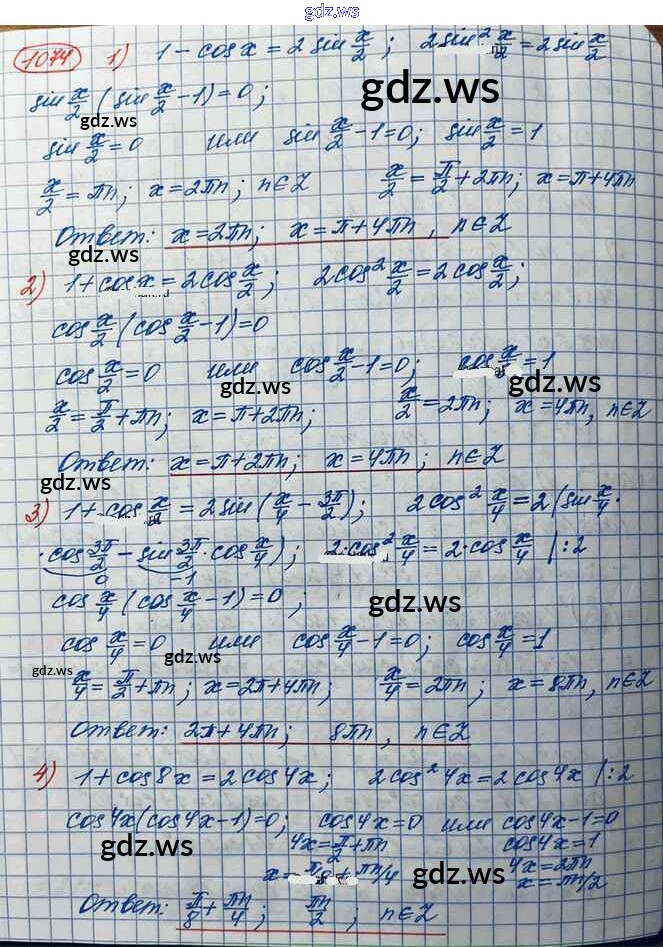 gdz.ws
1074 1) 1 - cos x = 2 sin x/2 ; 2 sin² x/2 = 2 sin x/2
sin x/2 (sin x/2 - 1) = 0;
gdz.ws
gdz.ws
sin x/2 = 0 или sin x/2 - 1 = 0; sin x/2 = 1
x/2 = πn; x = 2πn; n∈Z x/2 = π/2 + 2πn; x = π + 4πn
Ответ: x = 2πn; x = π + 4πn, n∈Z
gdz.ws
gdz.ws
2) 1 + cos x = 2 cos x/2 ; 2 cos² x/2 = 2 cos x/2 ;
cos x/2 (cos x/2 - 1) = 0
cos x/2 = 0 или cos x/2 - 1 = 0; cos x/2 = 1
gdz.ws
gdz.ws
x/2 = π/2 + πn; x = π + 2πn; x/2 = 2πn; x = 4πn, n∈Z
Ответ: x = π + 2πn; x = 4πn; n∈Z
gdz.ws
gdz.ws
3) 1 + cos x/2 = 2 sin (x/4 - 3π/2); 2 cos² x/4 = 2 (sin x/4 ·
· cos 3π/2 - sin 3π/2 · cos x/4); 2·cos² x/4 = 2·cos x/4 |:2
0 -1
gdz.ws
cos x/4 (cos x/4 - 1) = 0 ;
gdz.ws
cos x/4 = 0 или cos x/4 - 1 = 0; cos x/4 = 1
gdz.ws
gdz.ws
x/4 = π/2 + πn; x = 2π + 4πn; x/4 = 2πn; x = 8πn, n∈Z
Ответ: 2π + 4πn; 8πn, n∈Z
gdz.ws
4) 1 + cos 8x = 2 cos 4x; 2 cos² 4x = 2 cos 4x |:2
cos 4x (cos 4x - 1) = 0; cos 4x = 0 или cos 4x - 1 = 0
4x = π/2 + πn cos 4x = 1
gdz.ws
gdz.ws
x = π/8 + πn/4 4x = 2πn
x = πn/2
Ответ: π/8 + πn/4 ; πn/2 ; n∈Z
gdz.ws